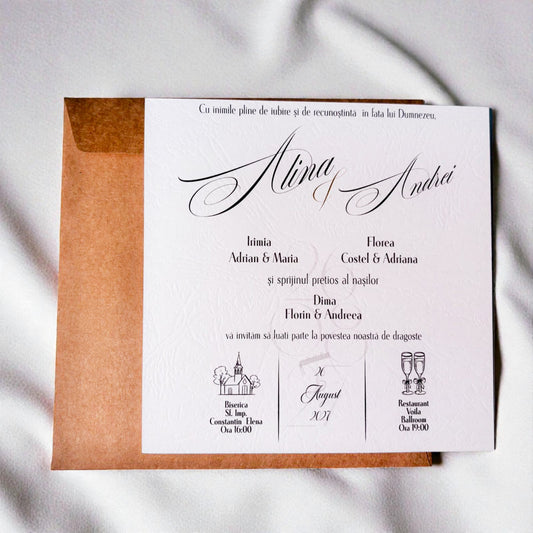 Cu inimile pline de iubire și de recunoștinta in fata lui Dumnezeu,
Alina & Andrei
Irimia
Adrian & Maria
Florea
Costel & Adriana
și sprijinul pretios al nașilor
Dima
Florin & Andreea
vă invităm să luati parte la povestea noastră de dragoste
Biserica
Sf. Imp.
Constantin Elena
Ora 16:00
August
Restaurant
Voila
Ballroom
Ora 19:00